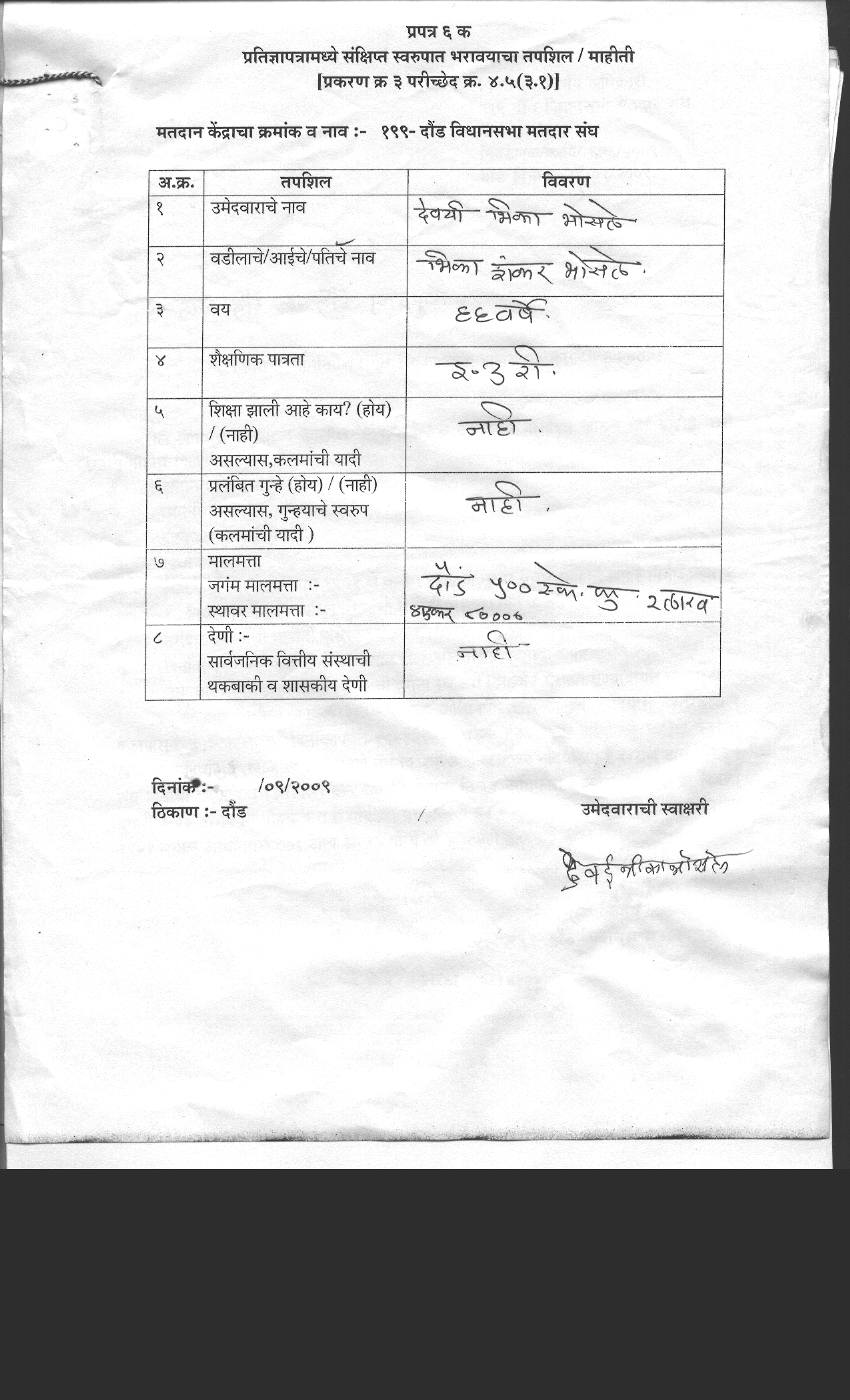 प्रपत्र ६ क
प्रतिज्ञापत्रामध्ये संक्षिप्त स्वरुपात भरावयाचा तपशिल / माहीती
[प्रकरण क्र ३ परीच्छेद क्र. ४.५(३.१)]
मतदान केंद्राचा क्रमांक व नाव :- १९९- दौंड विधानसभा मतदार संघ
अ.क्र. तपशिल विवरण
१ उमेदवाराचे नाव देवयी भिका भोसले
२ वडीलाचे/आईचे/पतिचे नाव भिका शंकर भोसले.
३ वय ६६ वर्षे.
४ शैक्षणिक पात्रता इ. ३ री.
५ शिक्षा झाली आहे काय? (होय) नाही.
/ (नाही)
असल्यास,कलमांची यादी
६ प्रलंबित गुन्हे (होय) / (नाही) नाही.
असल्यास, गुन्हयाचे स्वरुप
(कलमांची यादी )
७ मालमत्ता
जगंम मालमत्ता :- दौंड ५०० स्के. फु. २ लाख
स्थावर मालमत्ता :- ४ एकर ८००००
८ देणी :- नाही
सार्वजनिक वित्तीय संस्थाची
थकबाकी व शासकीय देणी
दिनांक :- /०९/२००९
ठिकाण :- दौंड उमेदवाराची स्वाक्षरी
देवई भीका भोसले